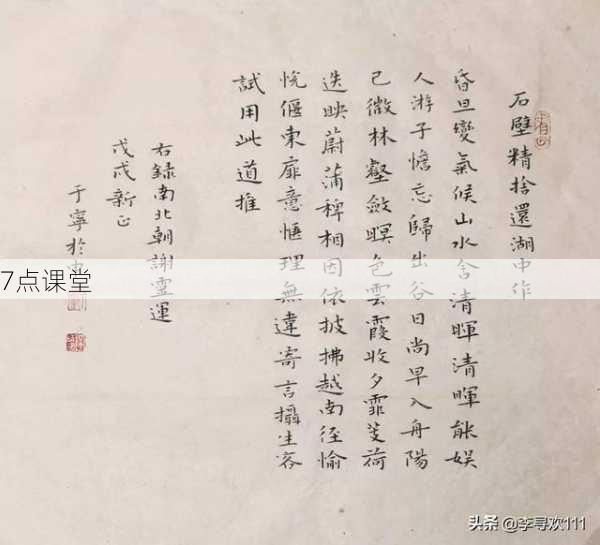 石壁精捨還湖中作
昏旦變氣候山水含清暉清暉能娱
人游子憺忘歸出谷日尚早入舟陽
已微林壑斂暝色雲霞收夕霏芰荷
迭映蔚蒲稗相因依披拂越南徑愉
恍偃東扉意愜理無違寄言攝生客
試用此道推
右録南北朝謝靈運
戊戌新正
于寧於
7点课堂
头条 @李寻欢111